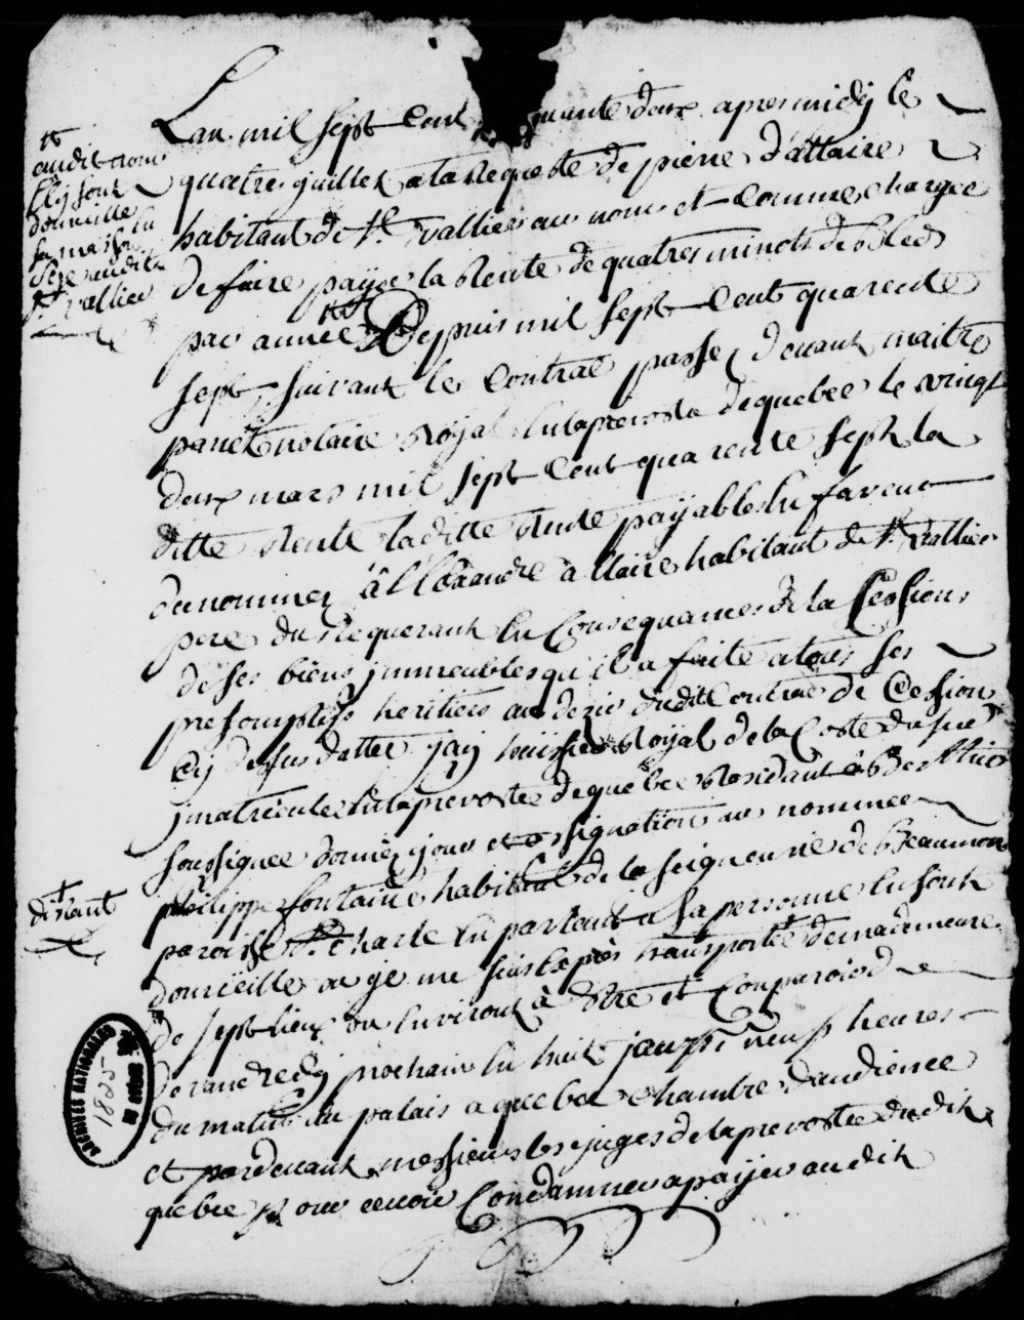 Lan mil sept Cent quante deux apres midy le
quatres juillet a la Requeste de pierre dallaire
habitant de St. vallier au nom et comme charge
de faire payer la Rente de quatres minots de bled
par année Depuis mil sept Cent quarente
sept, suivant le Contrac passez devant maitre
panet notaire Royal En la prevosté de quebec le vingt
deux mars mil sept Cent quarente sept la
ditte Rente la ditte Rente payable En faveur
du nommez alllexandre allaire habitant de St. vallier
pere du Requerant En Consequance de la Cession
de ses biens jmmeubles qu'il a faite a tous ses
presomptifs heritiers au desir dudit Contrac de Cession
Cy dessus datter jay huissier Royal de la Coste du sud
jmatricule En la prevostez de quebec Residant a
soussignee donnez jour et assignation au nommee
philippe fontaine habitant de la seigneurie de Beaumon
paroisse St. Charle En parlant a sa personne En son
domicille ou je me suis Exprès transporté de ma demeure
de sept lieux ou Environt à Estre et Comparoir
vendredy prochain En huit jours neuf heures
du matin au palais a quebec chambre daudience
et pardevant messieurs les juges de la prevostée dudit
quebec pour ce voir Condamner a payer audit
audit nom
Elisant
domicille
En maison
size audit
St. vallier
distant
ARCHIVES NATIONALES
1825